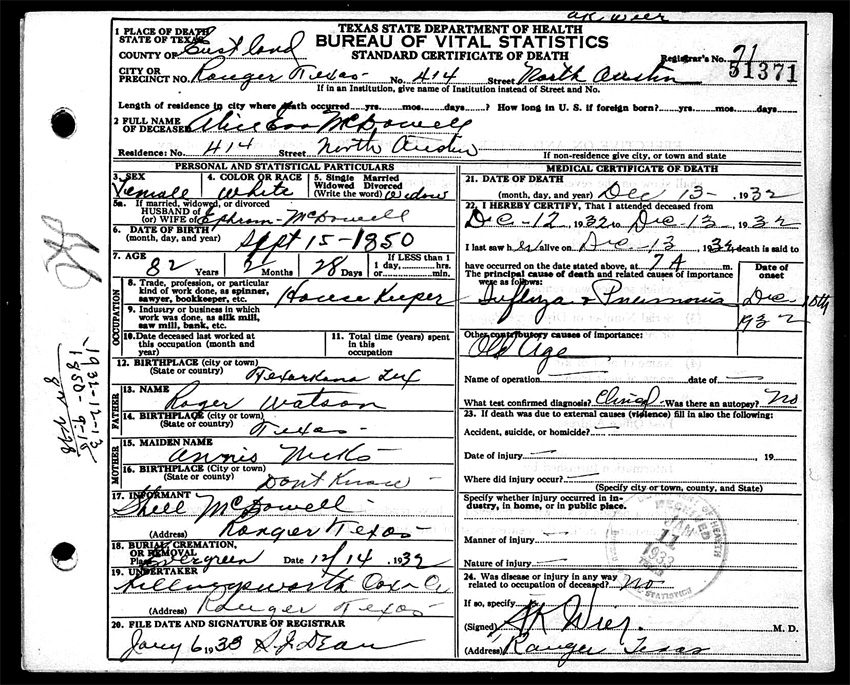 AK Wier
1 PLACE OF DEATH
STATE OF TEXAS
COUNTY OF Eastland
TEXAS STATE DEPARTMENT OF HEALTH
BUREAU OF VITAL STATISTICS
STANDARD CERTIFICATE OF DEATH
Registrar's No. 21
51371
CITY OR
PRECINCT NO. Ranger Texas No. 414 Street North Austin
If in an Institution, give name of Institution instead of Street and No.
Length of residence in city where death occurred yrs. mos. days? How long in U. S. if foreign born? yrs. mos. days?
2 FULL NAME
OF DECEASED Alice Eva McDowell
Residence: No. 414 Street North Austin
If non-residence give city, or town and state
PERSONAL AND STATISTICAL PARTICULARS
3. SEX Female
4. COLOR OR RACE White
5. Single Married
Widowed Divorced
(Write the word) Widow
5a. If married, widowed, or divorced
HUSBAND OF
(or) WIFE OF Ephram McDowell
6. DATE OF BIRTH
(month, day, and year) Sept 15-1850
7. AGE 82 Years 2 Months 28 Days
IF LESS than 1
1 day, hrs.
or min.
OCCUPATION
8. Trade, profession, or particular
kind of work done, as spinner,
sawyer, bookkeeper, etc. House Keeper
9. Industry or business in which
work was done, as silk mill,
saw mill, bank, etc.
10. Date deceased last worked at
this occupation (month and
year)
11. Total time (years) spent
in this
occupation
12. BIRTHPLACE (city or town)
(State or country) Texarkana Tex
FATHER
13. NAME Roger Watson
14. BIRTHPLACE (city or town)
(State or country) Texas
MOTHER
15. MAIDEN NAME Annis Hicks
16. BIRTHPLACE (city or town)
(State or country) Dont Know
17. INFORMANT Shell McDowell
(Address) Ranger Texas
18. BURIAL, CREMATION,
OR REMOVAL
Place Evergreen Date 12/14 1932
19. UNDERTAKER Killingsworth Cox Co
(Address) Ranger Texas
20. FILE DATE AND SIGNATURE OF REGISTRAR
Jany 6 1933 S.J. Dean
MEDICAL CERTIFICATE OF DEATH
21. DATE OF DEATH
(month, day, and year) Dec 13- 1932
22. I HEREBY CERTIFY, That I attended deceased from
Dec-12 1932 to Dec 13 1932
I last saw her alive on Dec-13 1932 death is said to
have occurred on the date stated above, at 7 A m.
The principal cause of death and related causes of importance
were as follows:
Date of
onset
Influnza & Pneumonia Dec 10th
1932
Other contributory causes of importance:
Old Age
Name of operation date of
What test confirmed diagnosis? Clinical Was there an autopsy? No
23. If death was due to external causes (violence) fill in also the following:
Accident, suicide, or homicide?
Date of injury , 19
Where did injury occur?
(Specify city or town, county, and State)
Specify whether injury occurred in in-
dustry, in home, or in public place.
Manner of injury
Nature of injury
RECEIVED
JAN
11
1933
24. Was disease or injury in any way
related to occupation of deceased? No
If so, specify
(Signed) AK Wier M. D.
(Address) Ranger Texas
1932-12-13
1850-9-15